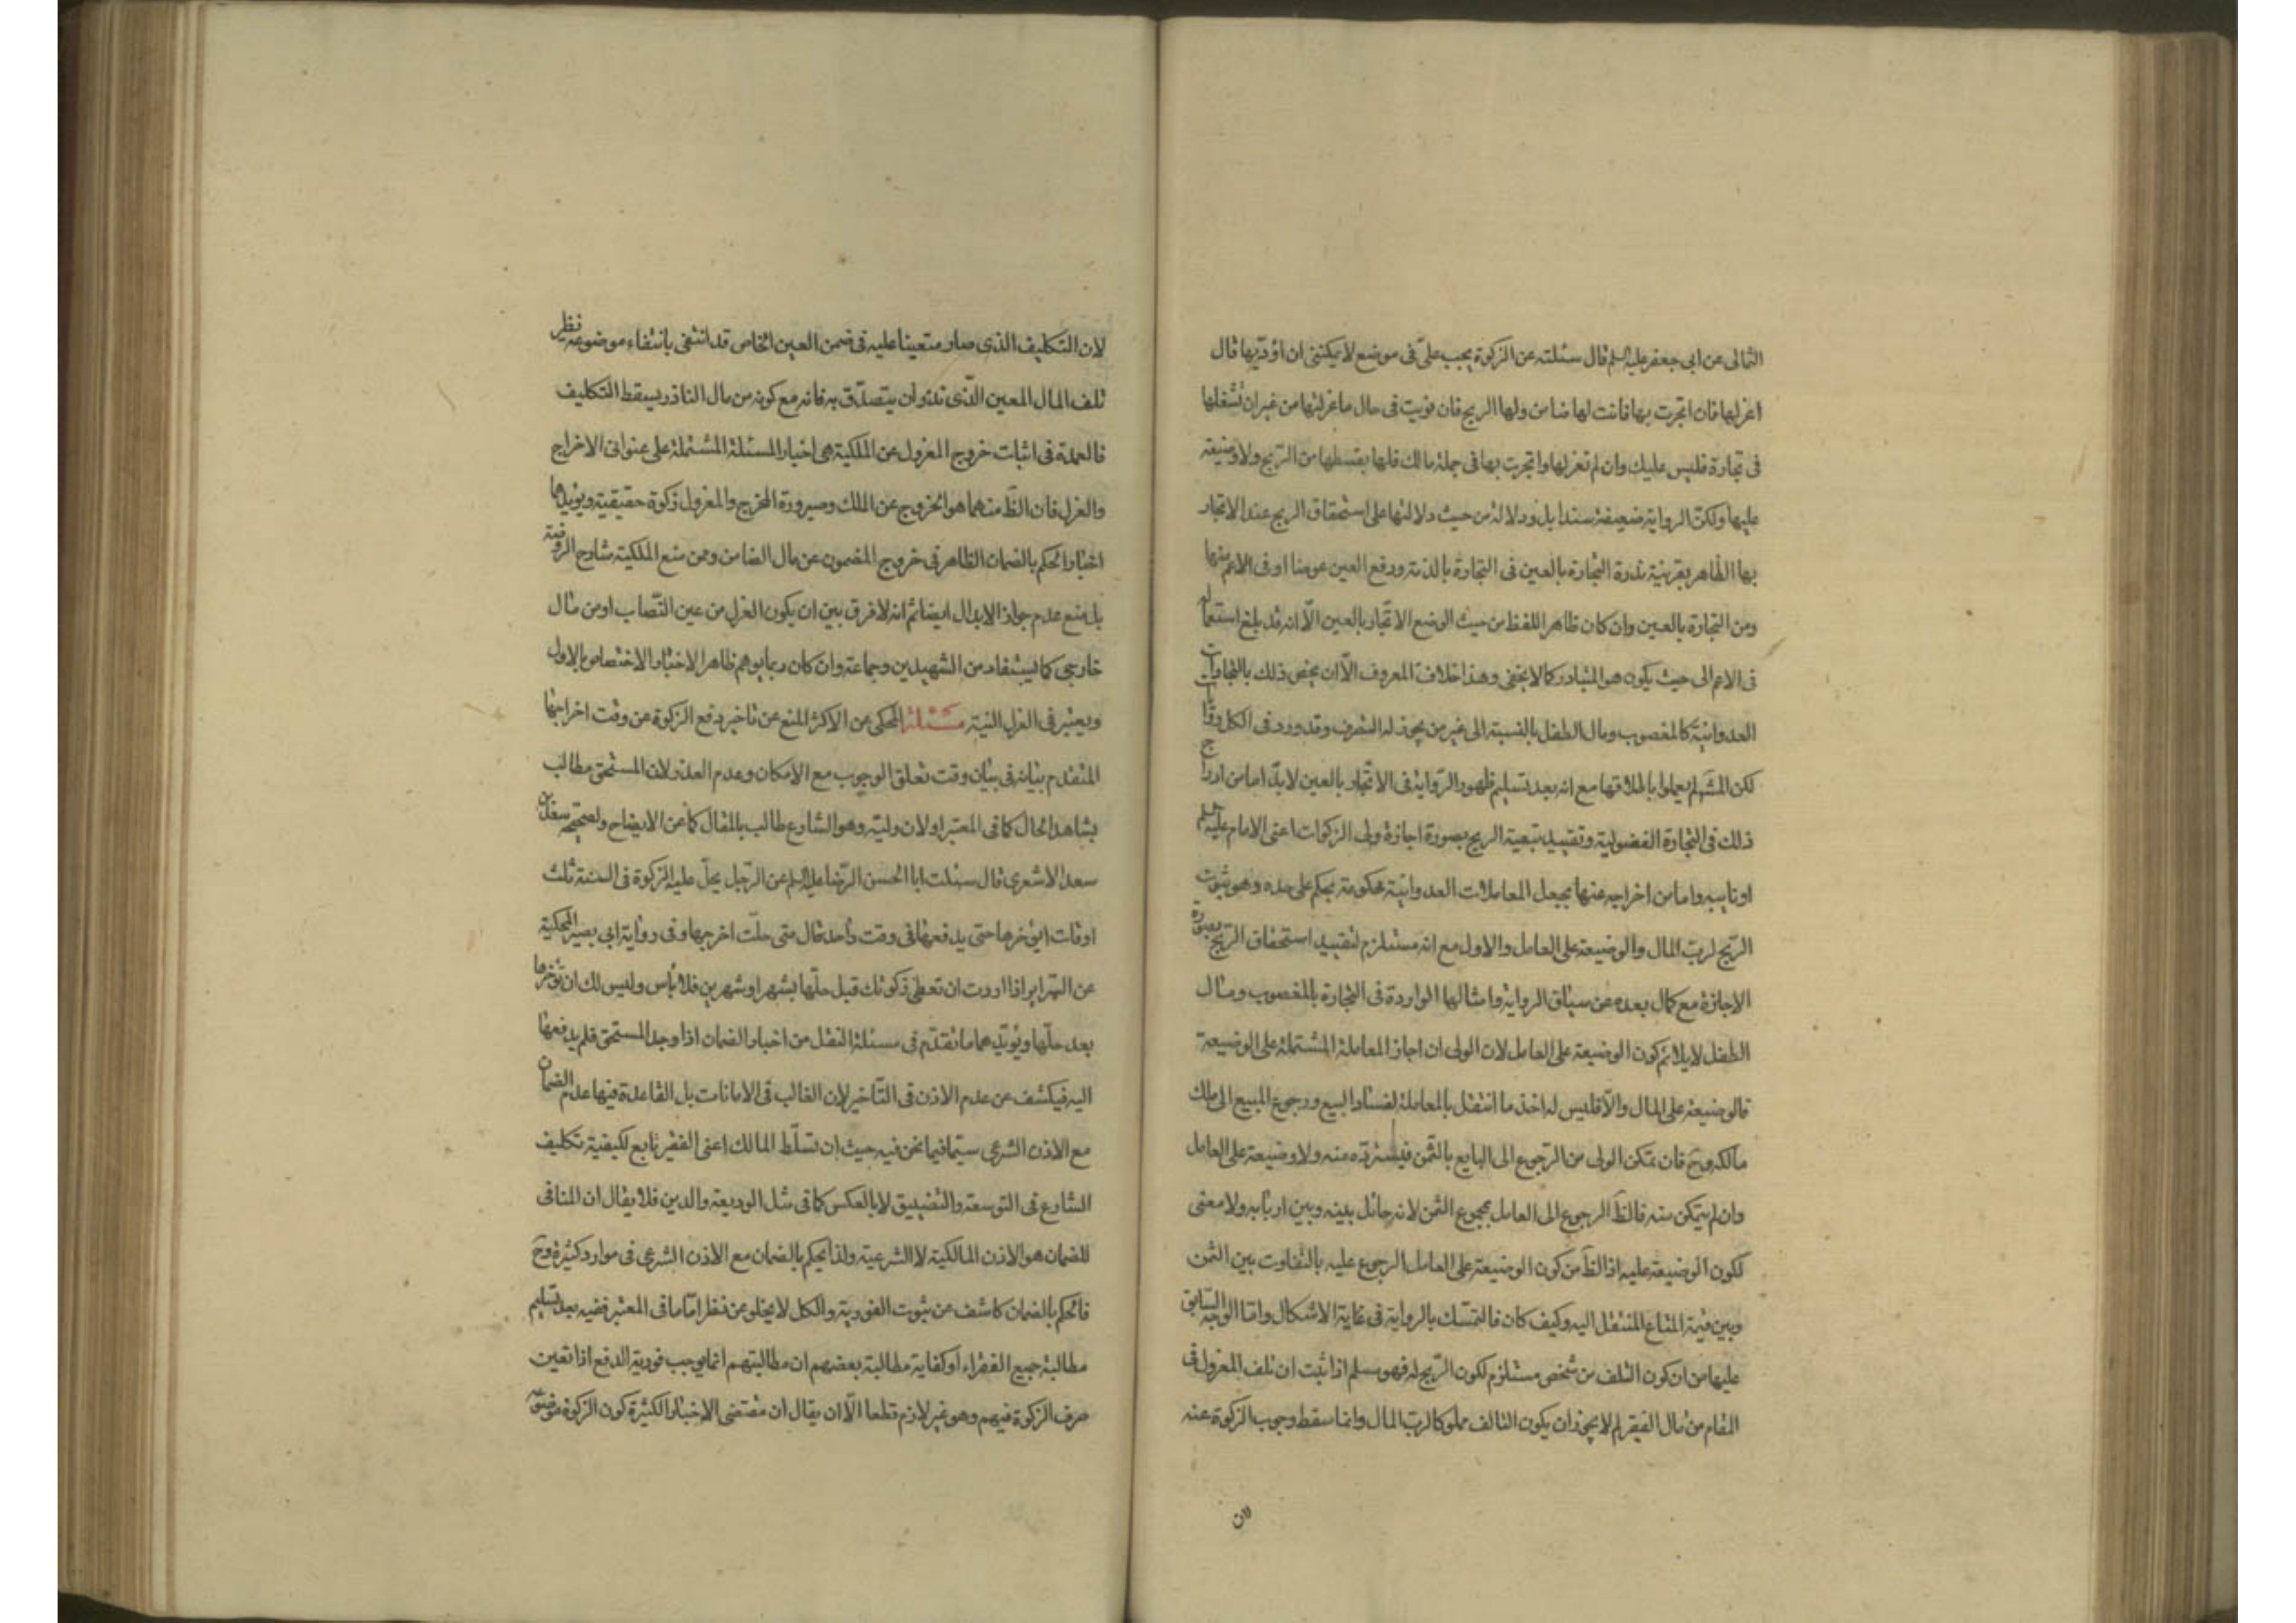 الثمالى عن ابى جعفر عليه السلم قال سئلته عن الزكوة يجب علىّ فى موضع لا يمكننى ان اؤدّيها قال
اعزلها فان اتجرت بها فانت لها ضامن ولها الربح فان تويت فى حال ما عزلتها من غير ان تشغلها
فى تجارة فليس عليك وان لم تعزلها واتجرت بها فى جملة مالك فلها بقسطها من الربح ولا وضيعة
عليها ولكنّ الرواية ضعيفة سندا بل ودلالة من حيث دلالتها على استحقاق الربح عند الاتجار
بها الظاهر بقرينة ندرة التجارة بالعين فى التجارة بالذمة ودفع العين عوضا او فى الاعم منها
ومن التجارة بالعين وان كان ظاهر اللفظ من حيث الوضع الاتّجار بالعين الّا انه قد بلغ استعماله
فى الاعم الى حيث يكون هو المتبادر كما لا يخفى وهذا خلاف المعروف الّا ان يخص ذلك بالتجارات
العدوانية كالمغصوب ومال الطفل بالنسبة الى غير من يجوز له التصرف وقد ورد فى الكل روايات
لكن المشهور لم يعملوا باطلاقها مع انه بعد تسليم ظهور الرّواية فى الاتّجار بالعين لا بدّ اما من ادراج
ذلك فى التجارة الفضولية وتقييد تبعية الربح بصورة اجازة ولى الزكوات اعنى الامام عليه السلم
او نايبه واما من اخراجه عنها بجعل المعاملات العدوانية محكومة بحكم على حده وهو ثبوت
الرّبح لربّ المال والوضيعة على العامل والاول مع انه مستلزم لتقييد استحقاق الرّبح بصورة
الاجازة مع كمال بعده عن سياق الرواية وامثالها الواردة فى التجارة بالمغصوب ومال
الطفل لا يلائم كون الوضيعة على العامل لان الولى ان اجاز المعاملة المشتملة على الوضيعة
فالوضيعة على المال والّا فليس له اخذ ما انتقل بالمعاملة لفساد البيع ورجوع المبيع الى ملك
مالكه وح فان تمكن الولى من الرّجوع الى البايع بالثمن فيستردّه منه ولا وضيعة على العامل
وان لم يتمكن منه فالظ الرجوع الى العامل بمجموع الثمن لانه حائل بينه وبين اربابه ولا معنى
لكون الوضيعة عليه اذ الظ من كون الوضيعة على العامل الرجوع عليه بالتفاوت بين الثمن
وبين قيمة المتاع المنتقل اليه وكيف كان فالتمسّك بالرواية فى غاية الاشكال وامّا الوجه السّابق
عليها من ان كون التلف من شخص مستلزم لكون الرّبح له فهو مسلم اذا ثبت ان تلف المعزول فى
المقام من مال الفقير لم لا يجوز ان يكون التالف مملوكا لربّ المال وانما سقط وجوب الزكوة عنه
لان
لان التكليف الذى صار متعينا عليه فى ضمن العين الخاص قد انتفى بانتفاء موضوعه نظير
تلف المال المعين الّذى نذر ان يتصدّق به فانه مع كونه من مال الناذر يسقط التكليف
فالعمدة فى اثبات خروج المعزول عن الملكية هى اخبار المسئلة المشتملة على عنوانى الاخراج
والعزل فان الظ منهما هو الخروج عن الملك وصيرورة المخرج والمعزول زكوة حقيقية ويؤيدها
اخبار الحكم بالضمان الظاهر فى خروج المضمون عن مال الضامن وممن منع الملكية شارح الروضة
بل منع عدم جواز الابدال ايضا ثم انه لا فرق بين ان يكون العزل من عين النّصاب او من مال
خارجى كما يستفاد من الشهيدين وجماعة وان كان ربما يوهم ظاهر الاخبار الاختصاص بالاول
ويعتبر فى العزل النية مسئلة المحكى عن الاكثر المنع عن تاخير دفع الزكوة عن وقت اخراجها
المتقدم بيانه فى بيان وقت تعلق الوجوب مع الامكان وعدم العذر لان المستحق مطالب
بشاهد الحال كما فى المعتبر او لان وليّه وهو الشارع طالب بالمقال كما عن الايضاح ولصحيحه سعد بن
سعد الاشعرى قال سئلت ابا الحسن الرّضا عليه السلم عن الرّجل يحلّ عليه الزكوة فى السنة ثلث
اوقات ايؤخرها حتى يدفعها فى وقت واحد قال متى حلّت اخرجها وفى رواية ابى بصير المحكية
عن السّراير اذا اردت ان تعطى زكوتك قبل حلّها بشهر او شهرين فلا بأس وليس لك ان تؤخرها
بعد حلّها ويؤيّدهما ما تقدّم فى مسئلة النقل من اخبار الضمان اذا وجد المستحق فلم يدفعها
اليه فيكشف عن عدم الاذن فى التّاخير لان الغالب فى الامانات بل القاعدة فيها عدم الضمان
مع الاذن الشرعى سيّما فيما نحن فيه حيث ان تسلّط المالك اعنى الفقير تابع لكيفية تكليف
الشارع فى التوسعة والتضييق لا بالعكس كما فى مثل الوديعة والدين فلا يقال ان المنافى
للضمان هو الاذن المالكية لا الشرعية ولذا يحكم بالضمان مع الاذن الشرعى فى موارد كثيرة وح
فالحكم بالضمان كاشف عن ثبوت الفورية والكل لا يخلو عن نظر امّا ما فى المعتبر ففيه بعد تسليم
مطالبة جميع الفقراء او كفاية مطالبة بعضهم ان مطالبتهم انما يوجب فورية الدفع اذا تعين
صرف الزكوة فيهم وهو غير لازم قطعا الّا ان يقال ان مقتضى الاخبار الكثيرة كون الزكوة